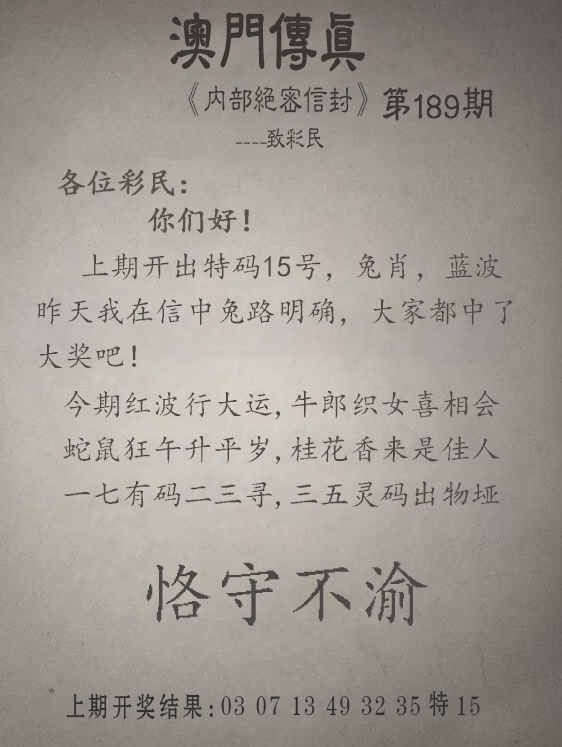 澳門傳眞
《内部絕密信封》第189期
----致彩民
各位彩民:
你们好!
上期开出特码15号,兔肖,蓝波
昨天我在信中兔路明确,大家都中了
大奖吧!
今期红波行大运,牛郎织女喜相会
蛇鼠狂午升平岁,桂花香来是佳人
一七有码二三寻,三五灵码出物垭
恪守不渝
上期开奖结果:03 07 13 49 32 35 特 15